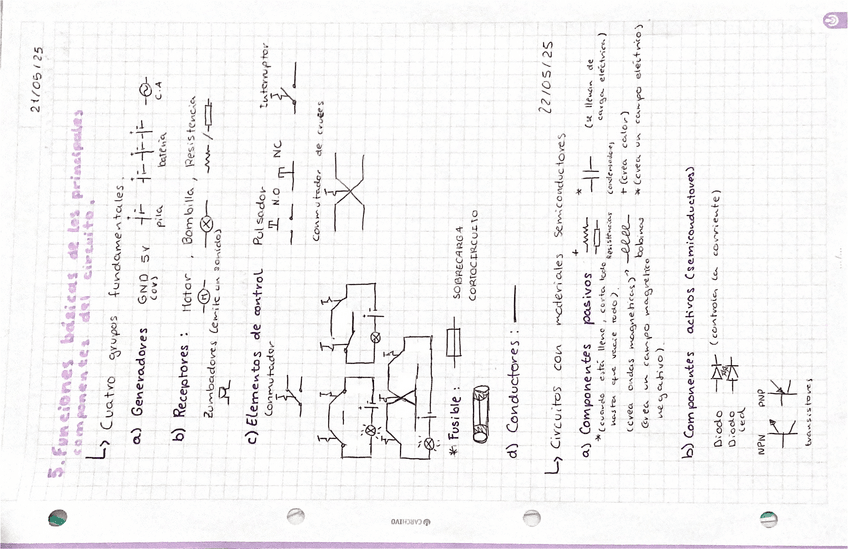 21/05/25
5. Funciones básicas de los principales
componentes del circuito.
↳ Cuatro grupos fundamentales.
a) Generadores GND 5V
(0V) pila batería C.A
b) Receptores: Motor, Bombilla, Resistencia
M
Zumbadores (emite un sonido)
c) Elementos de control Pulsador Interruptor
Conmutador N.O NC
Conmutador de cruces
* Fusible: SOBRECARGA
CORTOCIRCUITO
d) Conductores:
22/05/25
↳ Circuitos con materiales semiconductores
a) Componentes pasivos + *
* (cuando está lleno, corta todo Resistencias condensadores (se llenan de
hasta que vacíe todo). carga eléctrica)
(crea ondas magnéticas) + (crea calor)
bobinas * (crea un campo eléctrico)
(crea un campo magnético
negativo).
b) Componentes activos (semiconductores)
Diodo (controla la corriente)
Diodo
led
NPN PNP
transistores
CARCHIVO